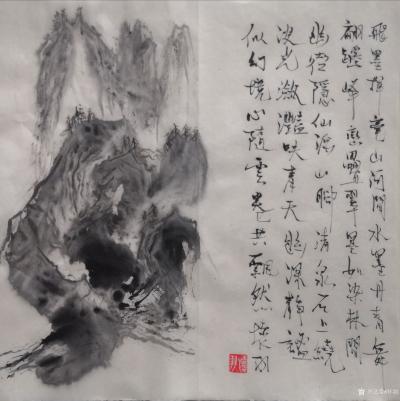 飛墨揮毫山河間水墨丹青舞
翩躚峰巒疊翠墨如染林間
幽徑隱仙
山腳清泉石上繞
波光瀲灩映青天
似幻境心隨雲卷共飄然